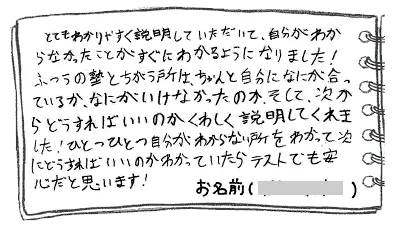 とてもわかりやすく説明していただいて、自分がわか
らなかったことがすぐにわかるようになりました！
ふつうの塾とちがう所は、ちゃんと自分になにが合っ
ているか、なにがいけなかったのか、そして、次か
らどうすればいいのかくわしく説明してくれま
した！ひとつひとつ自分がわからない所をわかって次
にどうすればいいのかわかっていたらテストでも安
心だと思います！
お名前( )